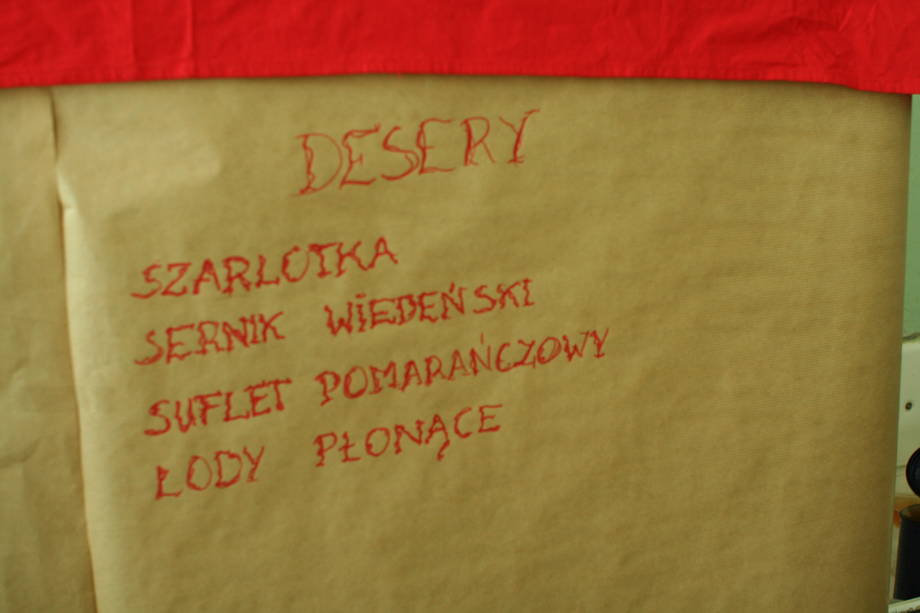 DESERY
SZARLOTKA
SERNIK WIEDEŃSKI
SUFLET POMARAŃCZOWY
LODY PŁONĄCE